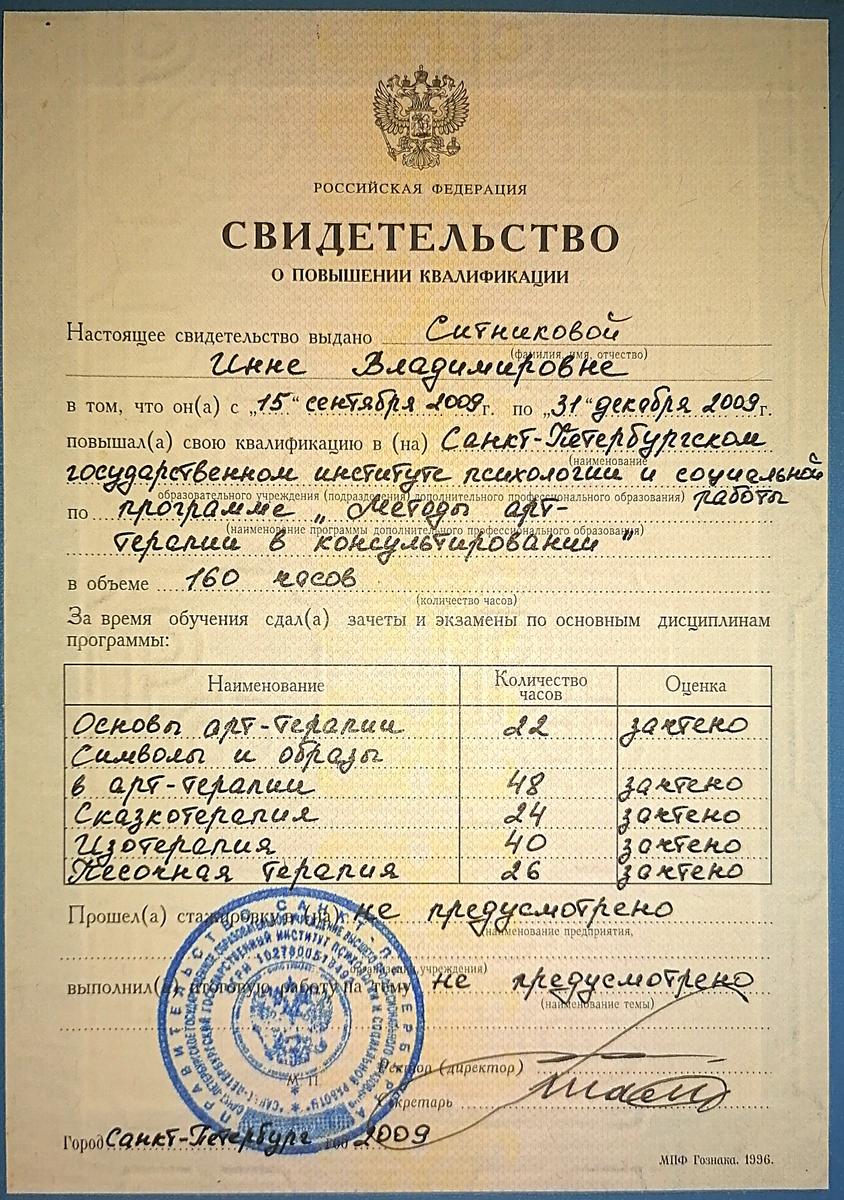 РОССИЙСКАЯ ФЕДЕРАЦИЯ
СВИДЕТЕЛЬСТВО
О ПОВЫШЕНИИ КВАЛИФИКАЦИИ
Настоящее свидетельство выдано Ситниковой
(фамилия, имя, отчество)
Инне Владимировне
в том, что он(а) с „15“ сентября 2009г. по „31“ декабря 2009г.
повышал(а) свою квалификацию в (на) Санкт-Петербургском
(наименование
государственном институте психологии и социальной
образовательного учреждения (подразделения) дополнительного профессионального образования)
работы
по программе „Методы арт-
(наименование программы дополнительного профессионального образования)
терапии в консультировании"
в объеме 160 часов
(количество часов)
За время обучения сдал(а) зачеты и экзамены по основным дисциплинам
программы:
Наименование Количество часов Оценка
Основы арт-терапии 22 зачтено
Символы и образы
в арт-терапии 48 зачтено
Сказкотерапия 24 зачтено
Изотерапия 40 зачтено
Песочная терапия 26 зачтено
Прошел(а) стажировку в (на) не предусмотрено
(наименование предприятия,
организации, учреждения)
выполнил(а) итоговую работу на тему не предусмотрено
(наименование темы)
Ректор (директор)
М П
Секретарь
Город Санкт-Петербург год 2009
МПФ Гознака. 1996.